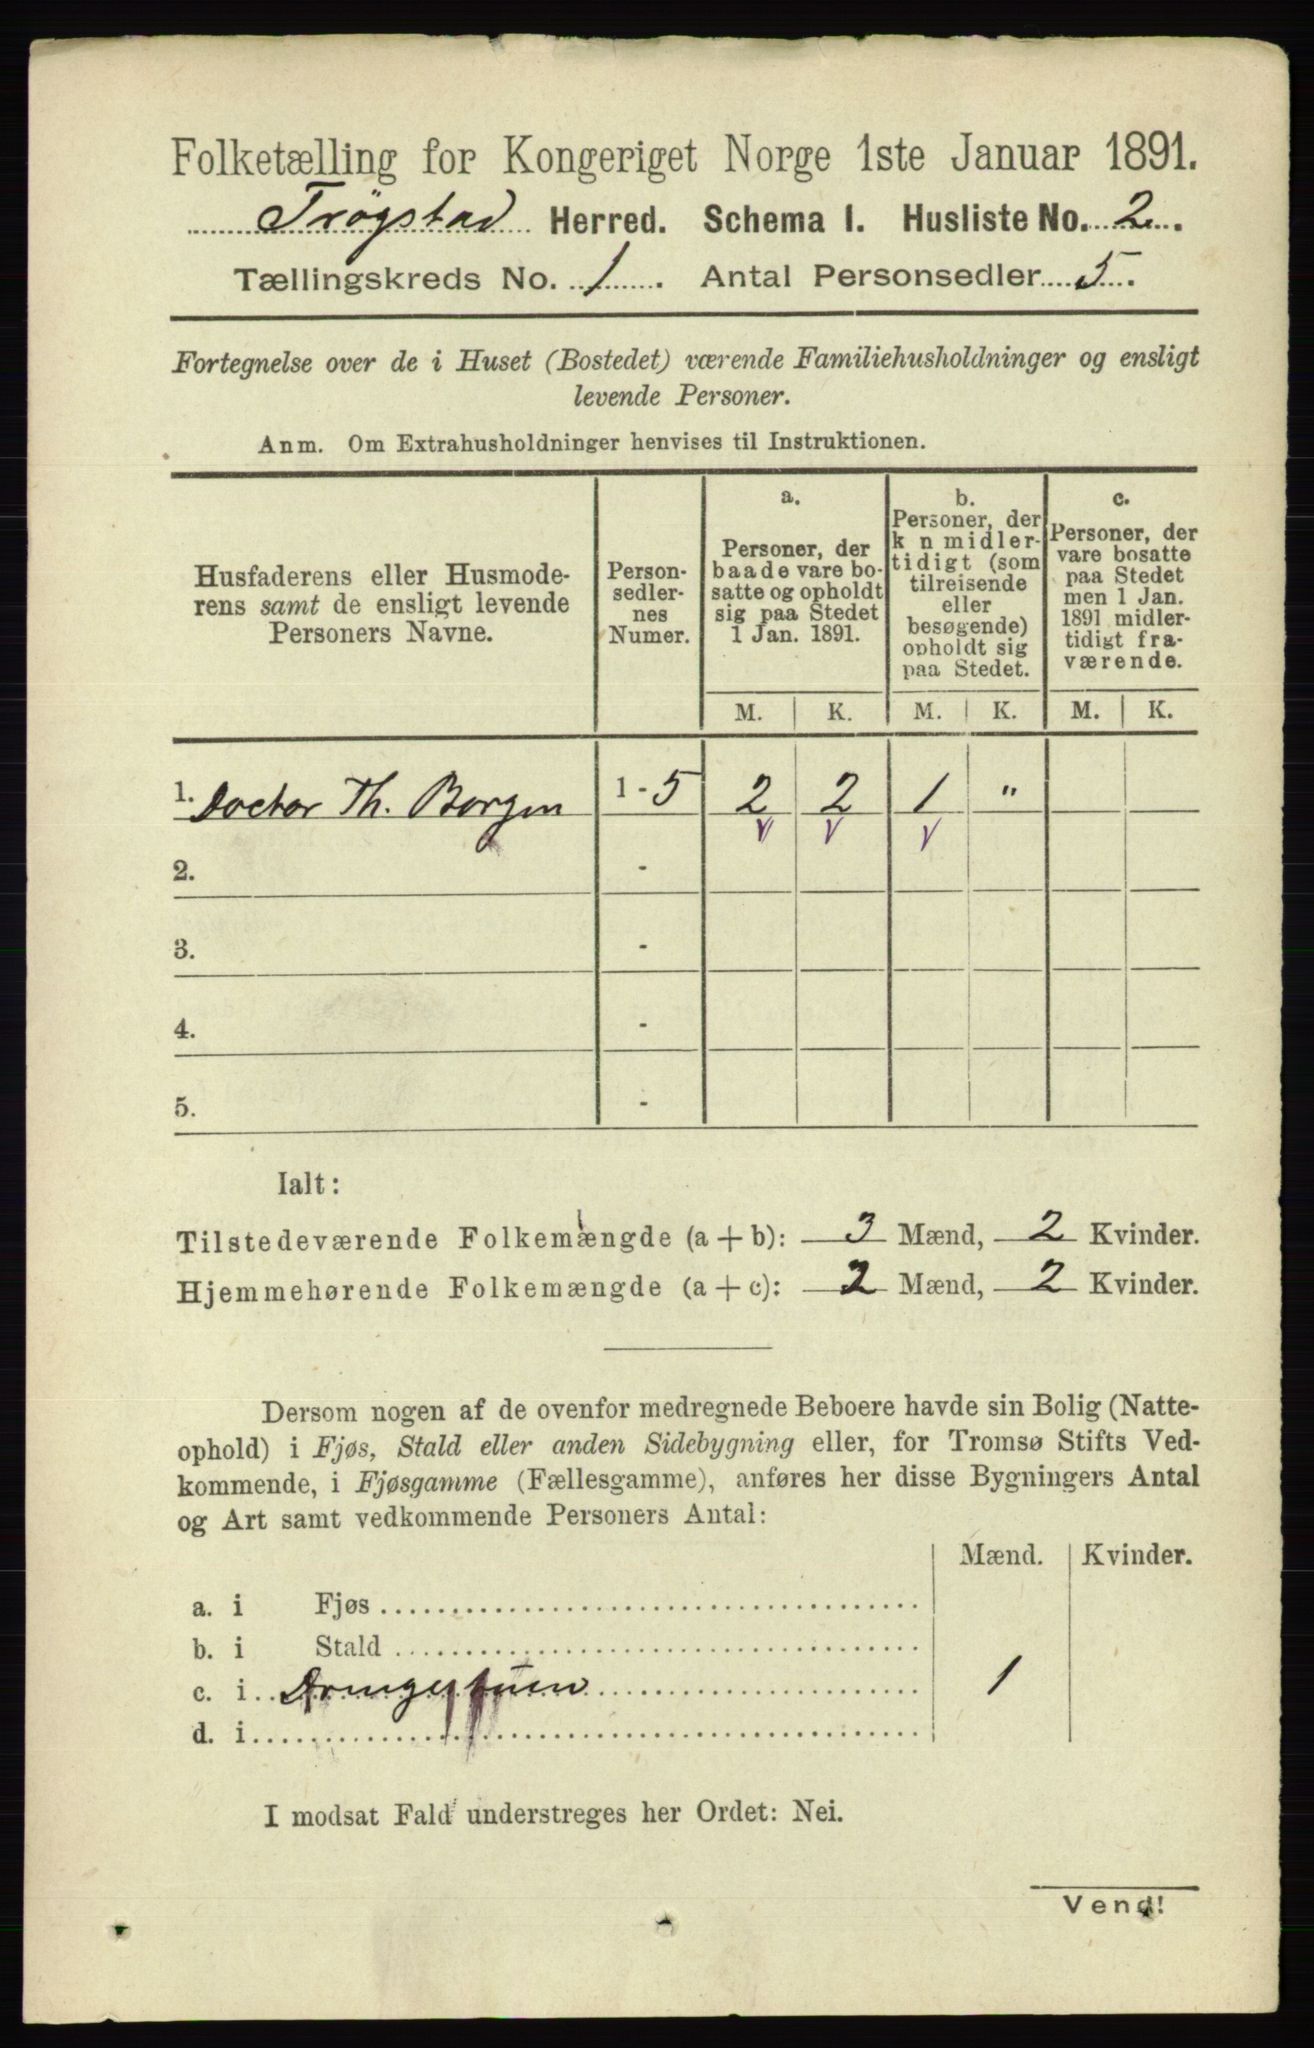 Folketælling for Kongeriget Norge 1ste Januar 1891.
Trøgstad Herred. Schema I. Husliste No. 2.
Tællingskreds No. 1. Antal Personsedler 5.
Fortegnelse over de i Huset (Bostedet) værende Familiehusholdninger og ensligt
levende Personer.
Anm. Om Extrahusholdninger henvises til Instruktionen.
Husfaderens eller Husmode-
rens samt de ensligt levende
Personers Navne.
Person-
sedler-
nes
Numer.
a.
Personer, der
baade vare bo-
satte og opholdt
sig paa Stedet
1 Jan. 1891.
b.
Personer, der
k n midler-
tidigt (som
tilreisende
eller
besøgende)
opholdt sig
paa Stedet.
c.
Personer, der
vare bosatte
paa Stedet
men 1 Jan.
1891 midler-
tidigt fra-
værende.
M. K. M. K. M. K.
1. Doctor Th. Borgen 1 - 5 2 2 1 "
V V V
2. -
3. -
4. -
5. -
Ialt:
Tilstedeværende Folkemængde (a + b): 3 Mænd, 2 Kvinder.
Hjemmehørende Folkemængde (a + c): 2 Mænd, 2 Kvinder.
Dersom nogen af de ovenfor medregnede Beboere havde sin Bolig (Natte-
ophold) i Fjøs, Stald eller anden Sidebygning eller, for Tromsø Stifts Ved-
kommende, i Fjøsgamme (Fællesgamme), anføres her disse Bygningers Antal
og Art samt vedkommende Personers Antal:
Mænd. Kvinder.
a. i Fjøs
b. i Stald
c. i Drengestuen 1
d. i
I modsat Fald understreges her Ordet: Nei.
Vend!